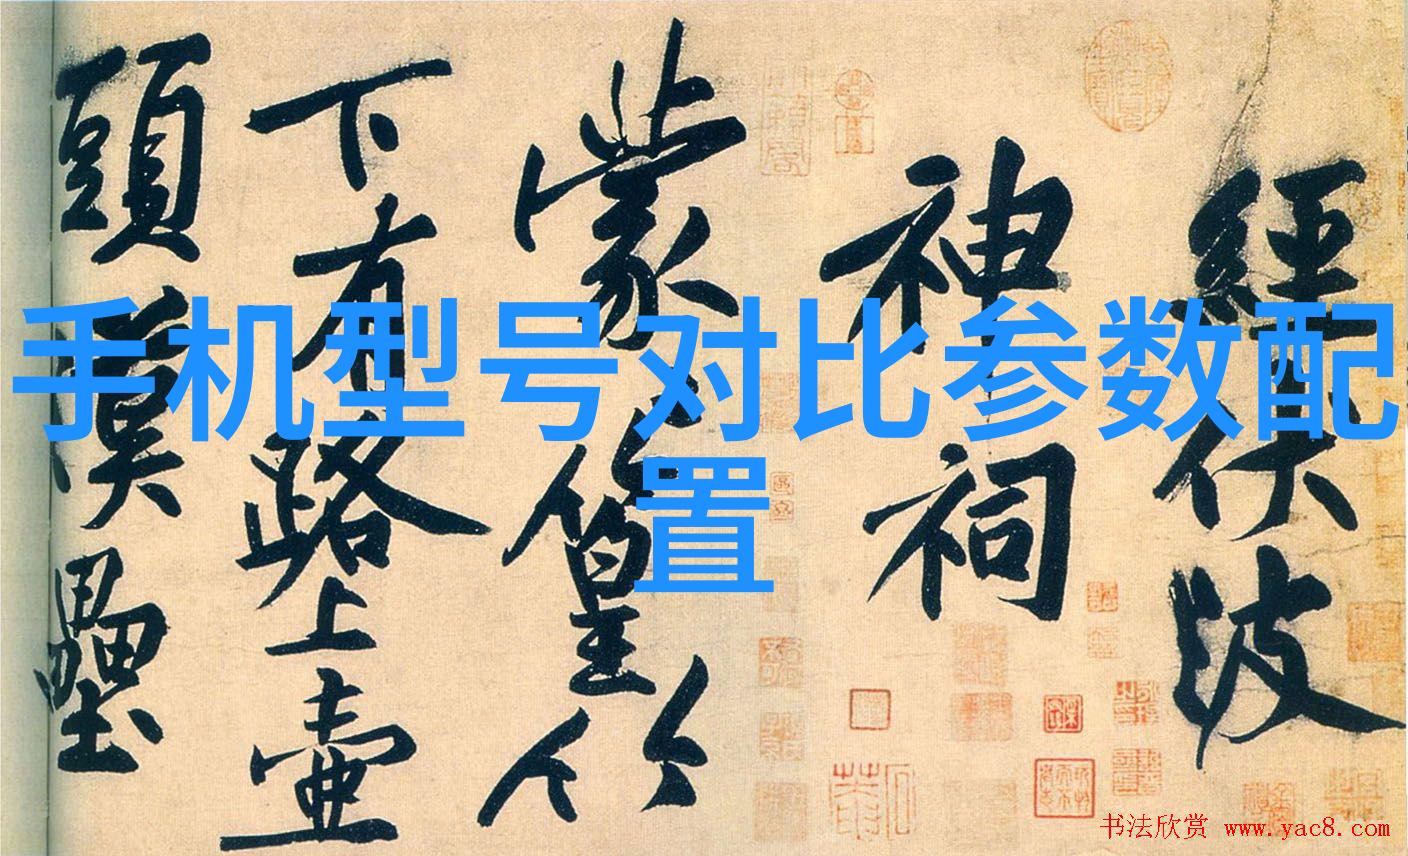 經伏波
神祠
蒙蒙篁竹
下有路上壺
頭漢壘
手机型号对比参数配
置
书法欣赏 www.yac8.com